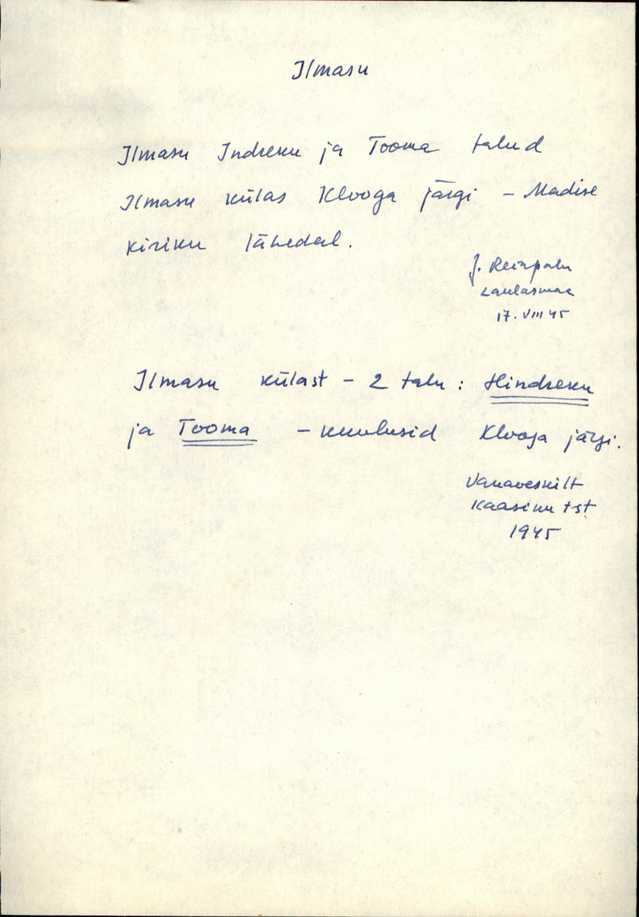 Ilmasu
Ilmasu Indreku ja Tooma talud
Ilmasu külas Klooga järgi – Madise
kiriku lähedal.
J. Reinpalu
Laulasmaa
17. VIII 45
Ilmasu külast – 2 talu: Hindreku
ja Tooma – kuulusid Klooga järgi.
Vanaveskilt
Kaasiku tst.
1945